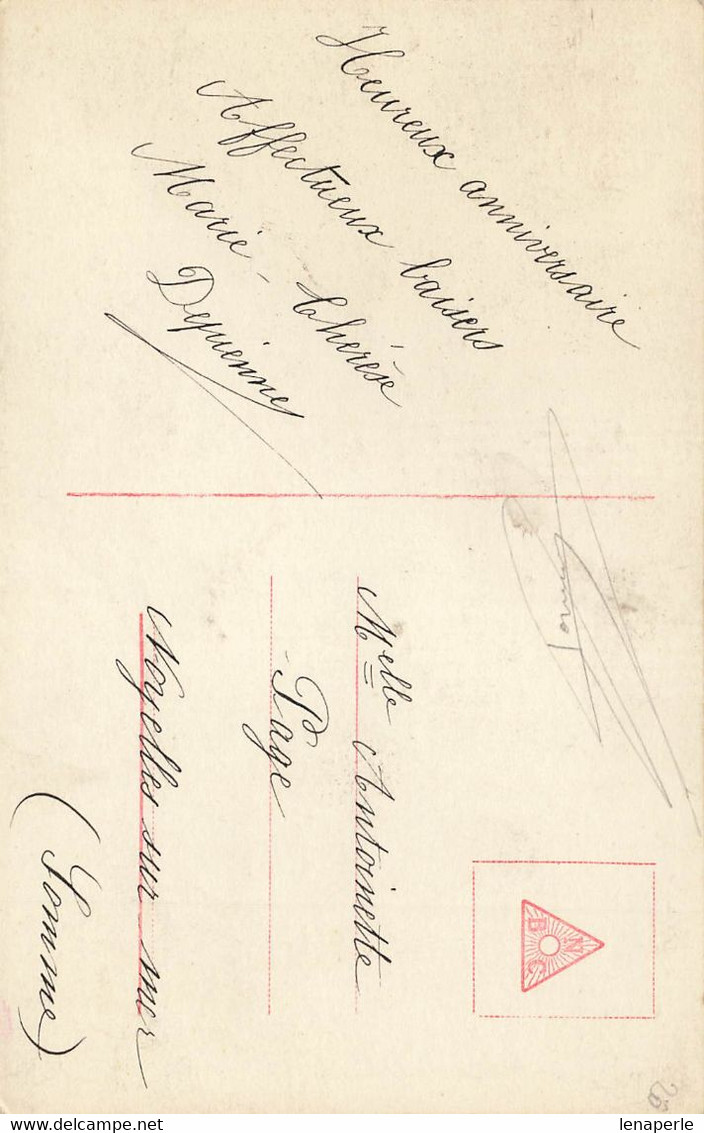 Heureux anniversaire
Affectueux baisers
Marie-Thérèse
Depienne
Melle Antoinette
Page
Noyelles sur mer
(Somme)
N
B C
lenaperle
www.delcampe.net